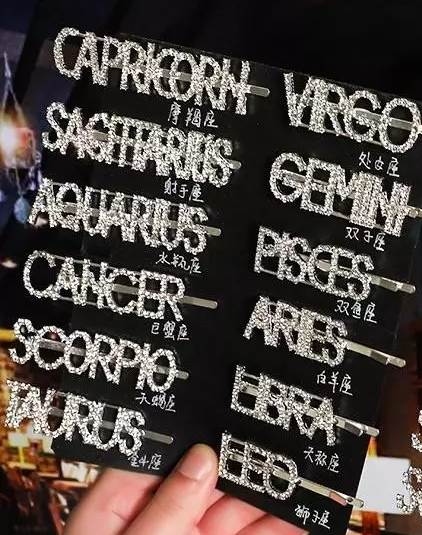 CAPRICORN
摩羯座
SAGITTARIUS
射手座
AQUARIUS
水瓶座
CANCER
巨蟹座
SCORPIO
天蝎座
TAURUS
金牛座
VIRGO
处女座
GEMINI
双子座
PISCES
双鱼座
ARIES
白羊座
LIBRA
天秤座
LEO
狮子座